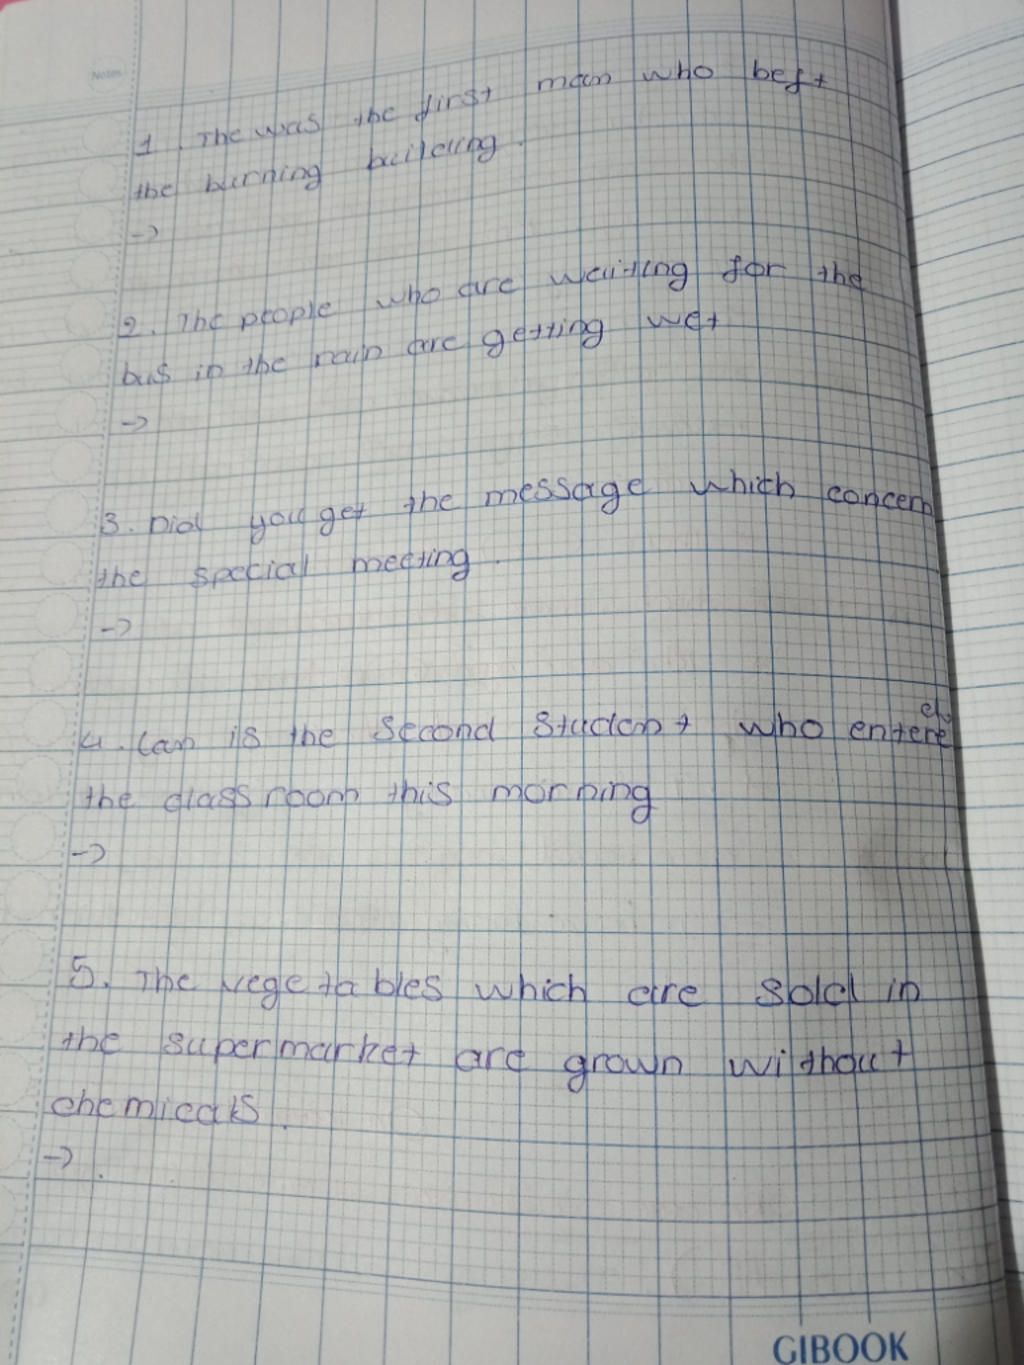 Notes
1. The was the first man who beft
the burning building.
->
2. The people who are waiting for the
bus in the rain are getting wet
->
3. Did you get the message which concern
the special meeting.
->
4. Lan is the second student who entered
the class room this morning
->
5. The vegetables which are sold in
the supermarket are grown without
chemicals.
->.
GIBOOK